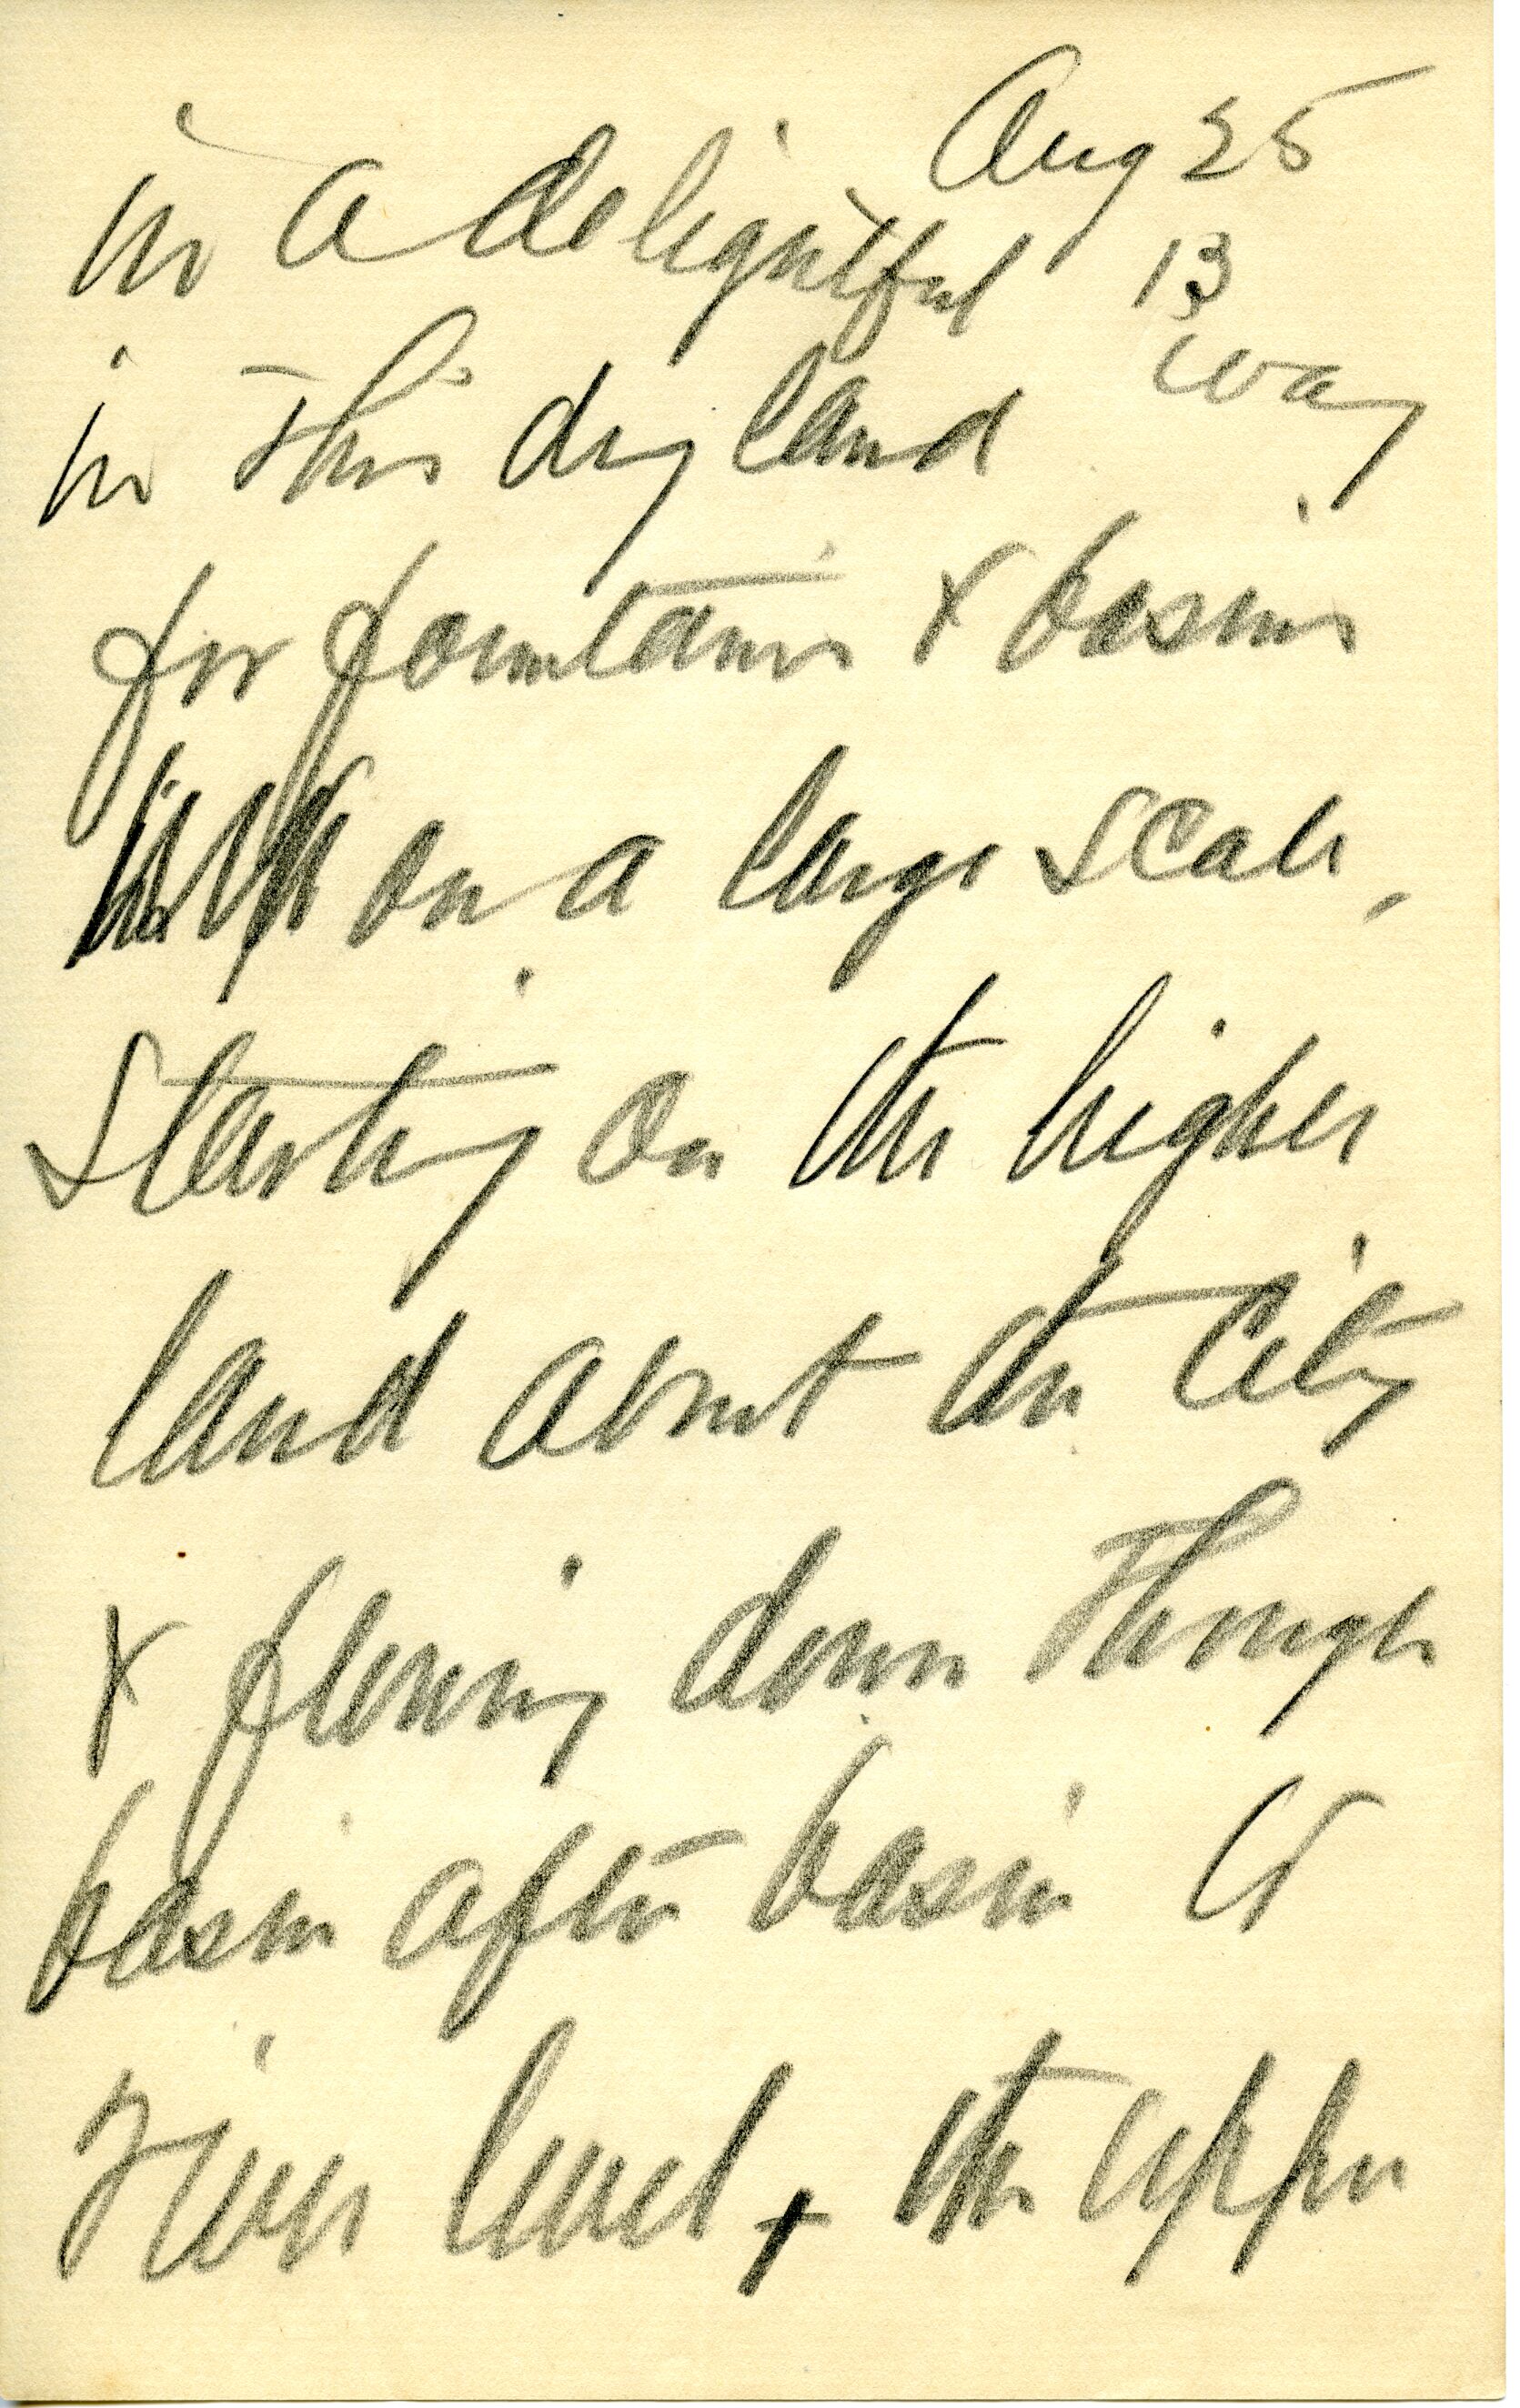 Aug 25
13
in a delightful way
in this dry land
for fountains & basins
on a large scale,
starting on the higher
land about the city
& flowing down through
basin after basin to
river level & the upper